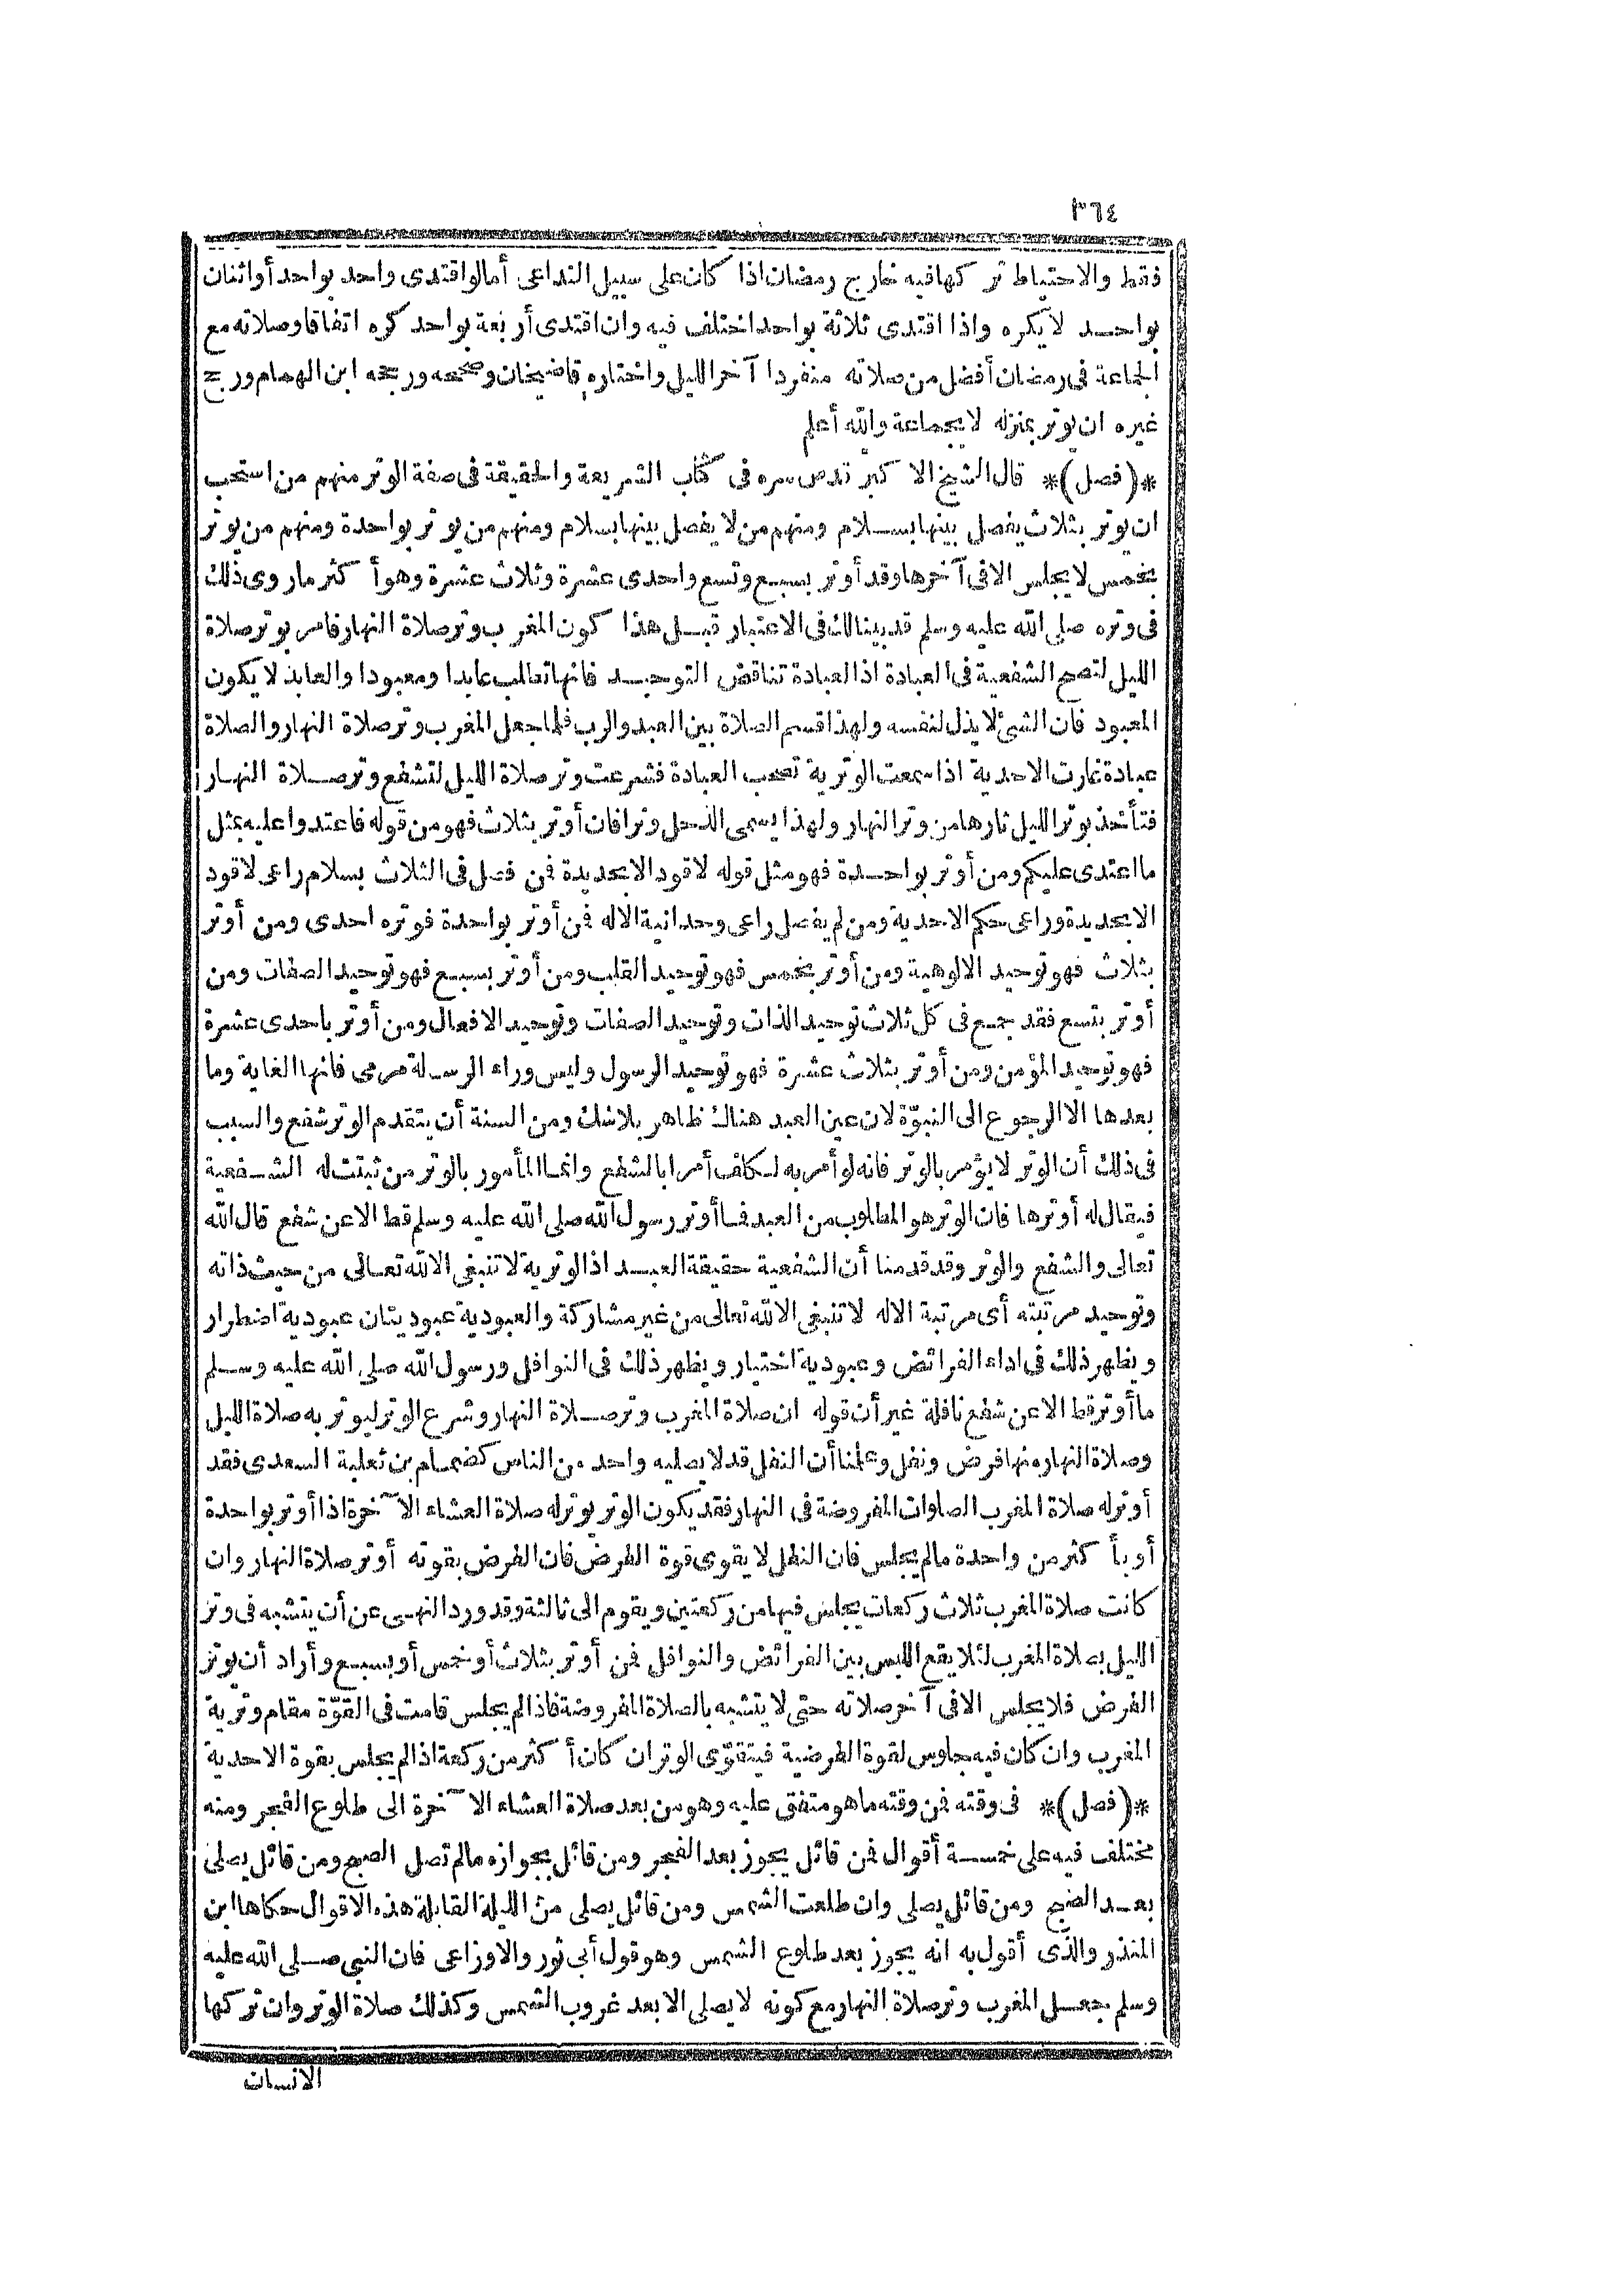 ٣٦٤
فقط والاحتياط تركها فيه خارج رمضان اذا كان على سبيل التداعى أما لو اقتدى واحد بواحد أو اثنان
بواحد لا يكره واذا اقتدى ثلاثة بواحد اختلف فيه وان اقتدى أربعة بواحد كره اتفاقا وصلاته مع
الجماعة فى رمضان أفضل من صلاته منفردا آخر الليل واختاره قاضيخان وصححه ورجحه ابن الهمام ورجح
غيره ان يوتر بمنزله لا بجماعة والله أعلم
*(فصل)* قال الشيخ الاكبر قدس سره فى كتاب الشريعة والحقيقة فى صفة الوتر منهم من استحب
ان يوتر بثلاث يفصل بينها بسلام ومنهم من لا يفصل بينها بسلام ومنهم من يوتر بواحدة ومنهم من يوتر
بخمس لا يجلس الا فى آخرها وقد أوتر بسبع وتسع واحدى عشرة وثلاث عشرة وهو أكثر ما روى ذلك
فى وتره صلى الله عليه وسلم قد بينا لك فى الاعتبار قبل هذا كون المغرب وتر صلاة النهار فامر بوتر صلاة
الليل لتصح الشفعية فى العبادة اذ العبادة تناقض التوحيد فانها تطلب عابدا ومعبودا والعابد لا يكون
المعبود فان الشئ لا يذل لنفسه ولهذا قسم الصلاة بين العبد والرب فلما جعل المغرب وتر صلاة النهار والصلاة
عبادة غارت الاحدية اذ سمعت الوترية تصحب العبادة فشرعت وتر صلاة الليل لتشفع وتر صلاة النهار
فتأخذ بوتر الليل ثارها من وتر النهار ولهذا يسمى الذحل وترا فان أوتر بثلاث فهو من قوله فاعتدوا عليه بمثل
ما اعتدى عليكم ومن أوتر بواحدة فهو مثل قوله لا قود الا بحديدة فمن فصل فى الثلاث بسلام راعى لا قود
الا بحديدة وراعى حكم الاحدية ومن لم يفصل راعى وحدانية الاله فمن أوتر بواحدة فوتره احدى ومن أوتر
بثلاث فهو توحيد الالوهية ومن أوتر بخمس فهو توحيد القلب ومن أوتر بسبع فهو توحيد الصفات ومن
أوتر بتسع فقد جمع فى كل ثلاث توحيد الذات وتوحيد الصفات وتوحيد الافعال ومن أوتر باحدى عشرة
فهو توحيد المؤمن ومن أوتر بثلاث عشرة فهو توحيد الرسول وليس وراء الرسالة مرمى فانها الغاية وما
بعدها الا الرجوع الى النبوّة لان عين العبد هناك ظاهر بلا شك ومن السنة أن يتقدم الوتر شفع والسبب
فى ذلك أن الوتر لا يؤمر بالوتر فانه لو أمر به لكلف أمرا بالشفع وانما المأمور بالوتر من ثبتت له الشفعية
فيقال له أوترها فان الوتر هو المطلوب من العبد فما أوتر رسول الله صلى الله عليه وسلم قط الا عن شفع قال الله
تعالى والشفع والوتر وقد قدمنا أن الشفعية حقيقة العبد اذ الوترية لا تنبغى الا لله تعالى من حيث ذاته
وتوحيد مرتبته أى مرتبة الاله لا تنبغى الا لله تعالى من غير مشاركة والعبودية عبوديتان عبودية اضطرار
ويظهر ذلك فى اداء الفرائض وعبودية اختيار ويظهر ذلك فى النوافل ورسول الله صلى الله عليه وسلم
ما أوتر قط الا عن شفع نافلة غير أن قوله ان صلاة المغرب وتر صلاة النهار وشرع الوتر ليوتر به صلاة الليل
وصلاة النهار منها فرض ونفل وعلمنا أن النفل قد لا يصليه واحد من الناس كضمام بن ثعلبة السعدى فقد
أوتر له صلاة المغرب الصلوات المفروضة فى النهار فقد يكون الوتر يوتر له صلاة العشاء الآخرة اذا أوتر بواحدة
أو بأكثر من واحدة ما لم يجلس فان النفل لا يقوى قوة الفرض فان الفرض بقوته أوتر صلاة النهار وان
كانت صلاة المغرب ثلاث ركعات يجلس فيها من ركعتين ويقوم الى ثالثة وقد ورد النهى عن أن يتشبه فى وتر
الليل بصلاة المغرب لئلا يقع اللبس بين الفرائض والنوافل فمن أوتر بثلاث أو خمس أو بسبع وأراد أن يوتر
الفرض فلا يجلس الا فى آخر صلاته حتى لا يتشبه بالصلاة المفروضة فاذا لم يجلس قامت فى القوّة مقام وترية
المغرب وان كان فيه جلوس لقوة الفرضية فيتقوّى الوتر ان كان أكثر من ركعة اذا لم يجلس بقوة الاحدية
*(فصل)* فى وقته فمن وقته ما هو متفق عليه وهو من بعد صلاة العشاء الآخرة الى طلوع الفجر ومنه
مختلف فيه على خمسة أقوال فمن قائل يجوز بعد الفجر ومن قائل بجوازه ما لم تصل الصبح ومن قائل يصلى
بعد الصبح ومن قائل يصلى وان طلعت الشمس ومن قائل يصلى من الليلة القابلة هذه الاقوال حكاها ابن
المنذر والذى أقول به انه يجوز بعد طلوع الشمس وهو قول أبى ثور والاوزاعى فان النبى صلى الله عليه
وسلم جعل المغرب وتر صلاة النهار مع كونه لا يصلى الا بعد غروب الشمس وكذلك صلاة الوتر وان تركها
الانسان